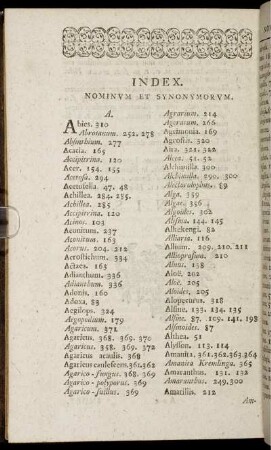 INDEX.
NOMINVM ET SYNONYMORVM.
A.
Abies. 310
Abrotanum. 252. 278
Absinthium. 277
Acacia. 165
Accipitrina. 120
Acer. 154. 155
Acetosa. 294
Acetosella. 47. 48
Achillea. 284. 285.
Achillea. 285
Accipitrina. 120
Acinos. 103
Aconitum. 237
Aconitum. 163
Acorus. 204. 212
Acrostichum. 334
Actaea. 165
Adianthum. 336
Adianthum. 336
Adonis. 160
Adoxa. 83
Aegilops. 324
Aegopodium. 179
Agaricum. 371
Agaricus. 368. 369. 370
Agaricus. 358. 369. 372
Agaricus acaulis. 368
Agaricus caulescens. 361. 362
Agarico-fungus. 368. 369
Agarico-polyporus. 369
Agarico-suillus. 369
Agrarium. 214
Ageratum. 266
Agrimonia. 169
Agrostis. 320
Aira. 321. 322
Alcea. 51. 52
Alchimilla. 300
Alchimilla. 299. 300
Alectorolophus. 89
Alga. 359
Algae. 356
Algoides. 302
Alisma. 144. 145
Alkekengi. 82
Alliaria. 116
Allium. 209. 210. 211
Allioprasum. 210
Alnus. 158
Aloë. 202
Aloë. 205
Aloides. 205
Alopecurus. 318
Alsine. 133. 134. 135
Alsine. 87. 109. 141. 198
Alsinoides. 87
Althea. 51
Alysson. 113. 114
Amanita. 361. 362. 363. 364
Amanita Kremlinga. 365
Amaranthus. 131. 132
Amaranthus. 249. 300
Amarillis. 212
Am-